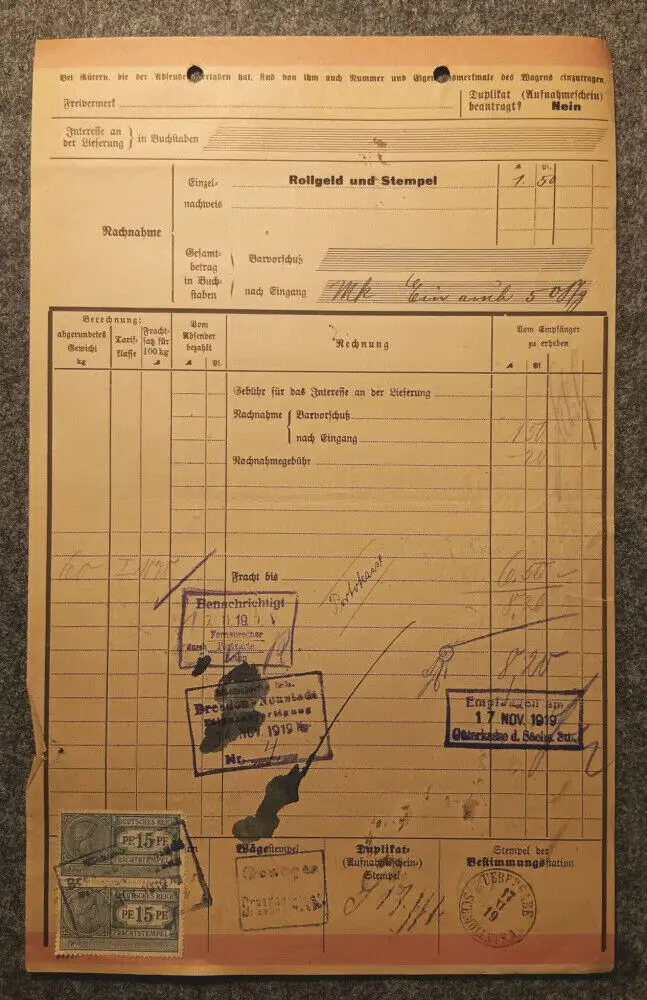 Bei Gütern, die der Absender verladen hat, sind von ihm auch Nummer und Eigentumsmerkmale des Wagens einzutragen.
Freivermerk
Duplikat (Aufnahmeschein)
beantragt? Nein
Interesse an
der Lieferung } in Buchstaben
Einzel-
nachweis
Rollgeld und Stempel
M Pf.
1. 50
Nachnahme
Gesamt-
betrag
in Buch-
staben
Barvorschuß
nach Eingang
Mk Ein 50 Pfg
Berechnung:
abgerundetes
Gewicht
kg
Tarif-
klasse
Fracht-
satz für
100 kg
M
Vom
Absender
bezahlt
M Pf.
Rechnung
Vom Empfänger
zu erheben
M Pf.
Gebühr für das Interesse an der Lieferung
Nachnahme { Barvorschuß
nach Eingang
1 50
Nachnahmegebühr
– 20
60 I
Fracht bis
6,50
Portokasse
8,20
Benachrichtigt
Fernsprecher
durch Postkarte
Boten
8,20
Dresden-Neustadt
14. NOV. 1919
Nr. 4
Empfangen am
17 NOV. 1919
DEUTSCHES REICH
PF 15 PF
FRACHTSTEMPEL
DEUTSCHES REICH
PF 15 PF
FRACHTSTEMPEL
Wägestempel
Duplikat-
(Aufnahmeschein-)
Stempel
Stempel der
Bestimmungsstation
Dresden
17
19